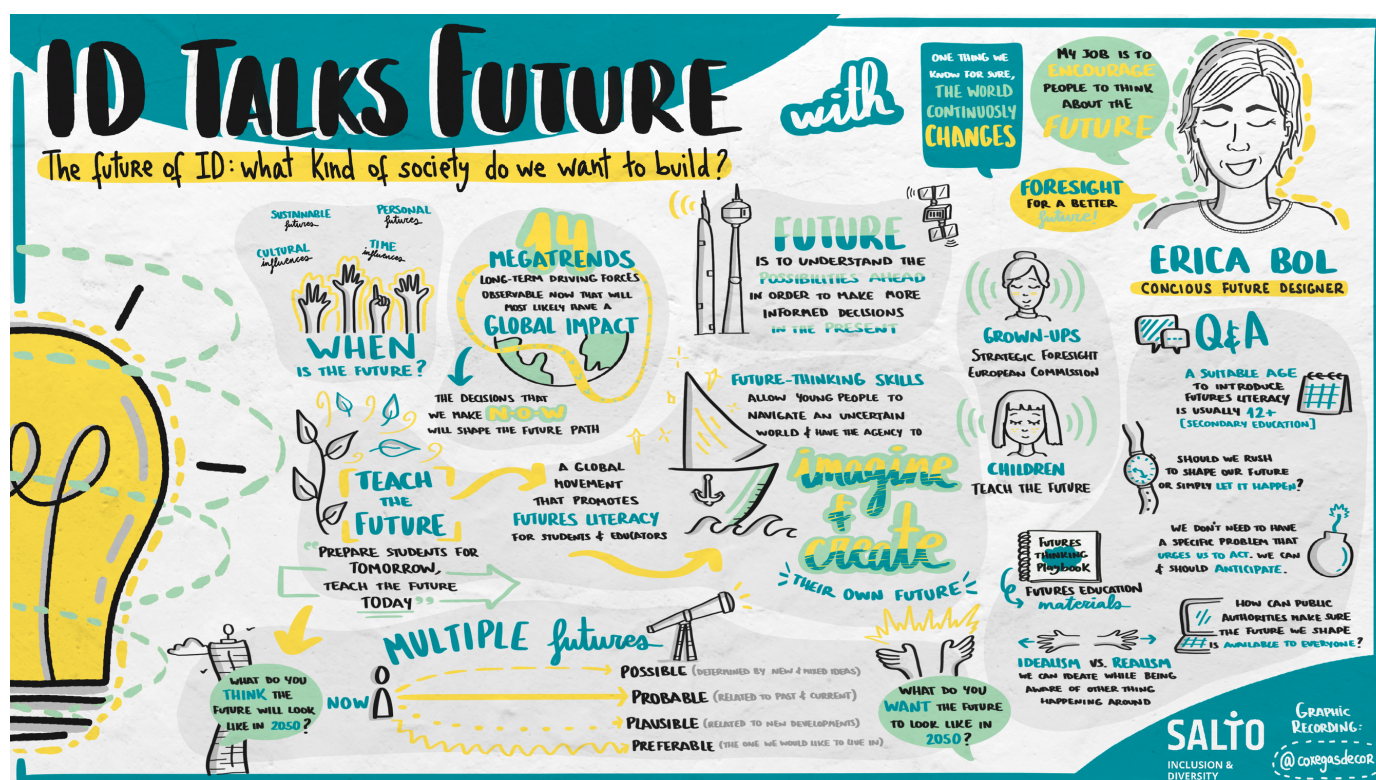 ID TALKS FUTURE
The future of ID: what kind of society do we want to build?
with
ONE THING WE
KNOW FOR SURE,
THE WORLD
CONTINUOSLY
CHANGES
MY JOB IS TO
ENCOURAGE
PEOPLE TO THINK
ABOUT THE
FUTURE
FORESIGHT
FOR A BETTER
future!
ERICA BOL
CONCIOUS FUTURE DESIGNER
SUSTAINABLE
futures
PERSONAL
futures
CULTURAL
influences
TIME
influences
WHEN
IS THE FUTURE?
14
MEGATRENDS
LONG-TERM DRIVING FORCES
OBSERVABLE NOW THAT WILL
MOST LIKELY HAVE A
GLOBAL IMPACT
THE DECISIONS THAT
WE MAKE N·O·W
WILL SHAPE THE FUTURE PATH
FUTURE
IS TO UNDERSTAND THE
POSSIBILITIES AHEAD
IN ORDER TO MAKE MORE
INFORMED DECISIONS
IN THE PRESENT
GROWN-UPS
STRATEGIC FORESIGHT
EUROPEAN COMMISSION
CHILDREN
TEACH THE FUTURE
TEACH
THE
FUTURE
"PREPARE STUDENTS FOR
TOMORROW,
TEACH THE FUTURE
TODAY"
A GLOBAL
MOVEMENT
THAT PROMOTES
FUTURES LITERACY
FOR STUDENTS & EDUCATORS
FUTURE-THINKING SKILLS
ALLOW YOUNG PEOPLE TO
NAVIGATE AN UNCERTAIN
WORLD & HAVE THE AGENCY TO
imagine
&
create
THEIR OWN FUTURE
Futures
Thinking
Playbook
FUTURES EDUCATION
materials
IDEALISM VS. REALISM
WE CAN IDEATE WHILE BEING
AWARE OF OTHER THING
HAPPENING AROUND
Q&A
A SUITABLE AGE
TO INTRODUCE
FUTURES LITERACY
IS USUALLY 12+
[SECONDARY EDUCATION]
SHOULD WE RUSH
TO SHAPE OUR FUTURE
OR SIMPLY LET IT HAPPEN?
WE DON'T NEED TO HAVE
A SPECIFIC PROBLEM THAT
URGES US TO ACT. WE CAN
& SHOULD ANTICIPATE.
HOW CAN PUBLIC
AUTHORITIES MAKE SURE
THE FUTURE WE SHAPE
IS AVAILABLE TO EVERYONE?
MULTIPLE futures
WHAT DO YOU
THINK THE
FUTURE WILL LOOK
LIKE IN 2050?
NOW
POSSIBLE (DETERMINED BY NEW & MIXED IDEAS)
PROBABLE (RELATED TO PAST & CURRENT)
PLAUSIBLE (RELATED TO NEW DEVELOPMENTS)
PREFERABLE (THE ONE WE WOULD LIKE TO LIVE IN)
WHAT DO YOU
WANT THE FUTURE
TO LOOK LIKE IN
2050?
SALTO
INCLUSION &
DIVERSITY
GRAPHIC
RECORDING:
@coxegasdecor